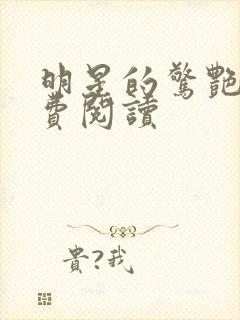 明星的驚艷
費閱讀
貴?我